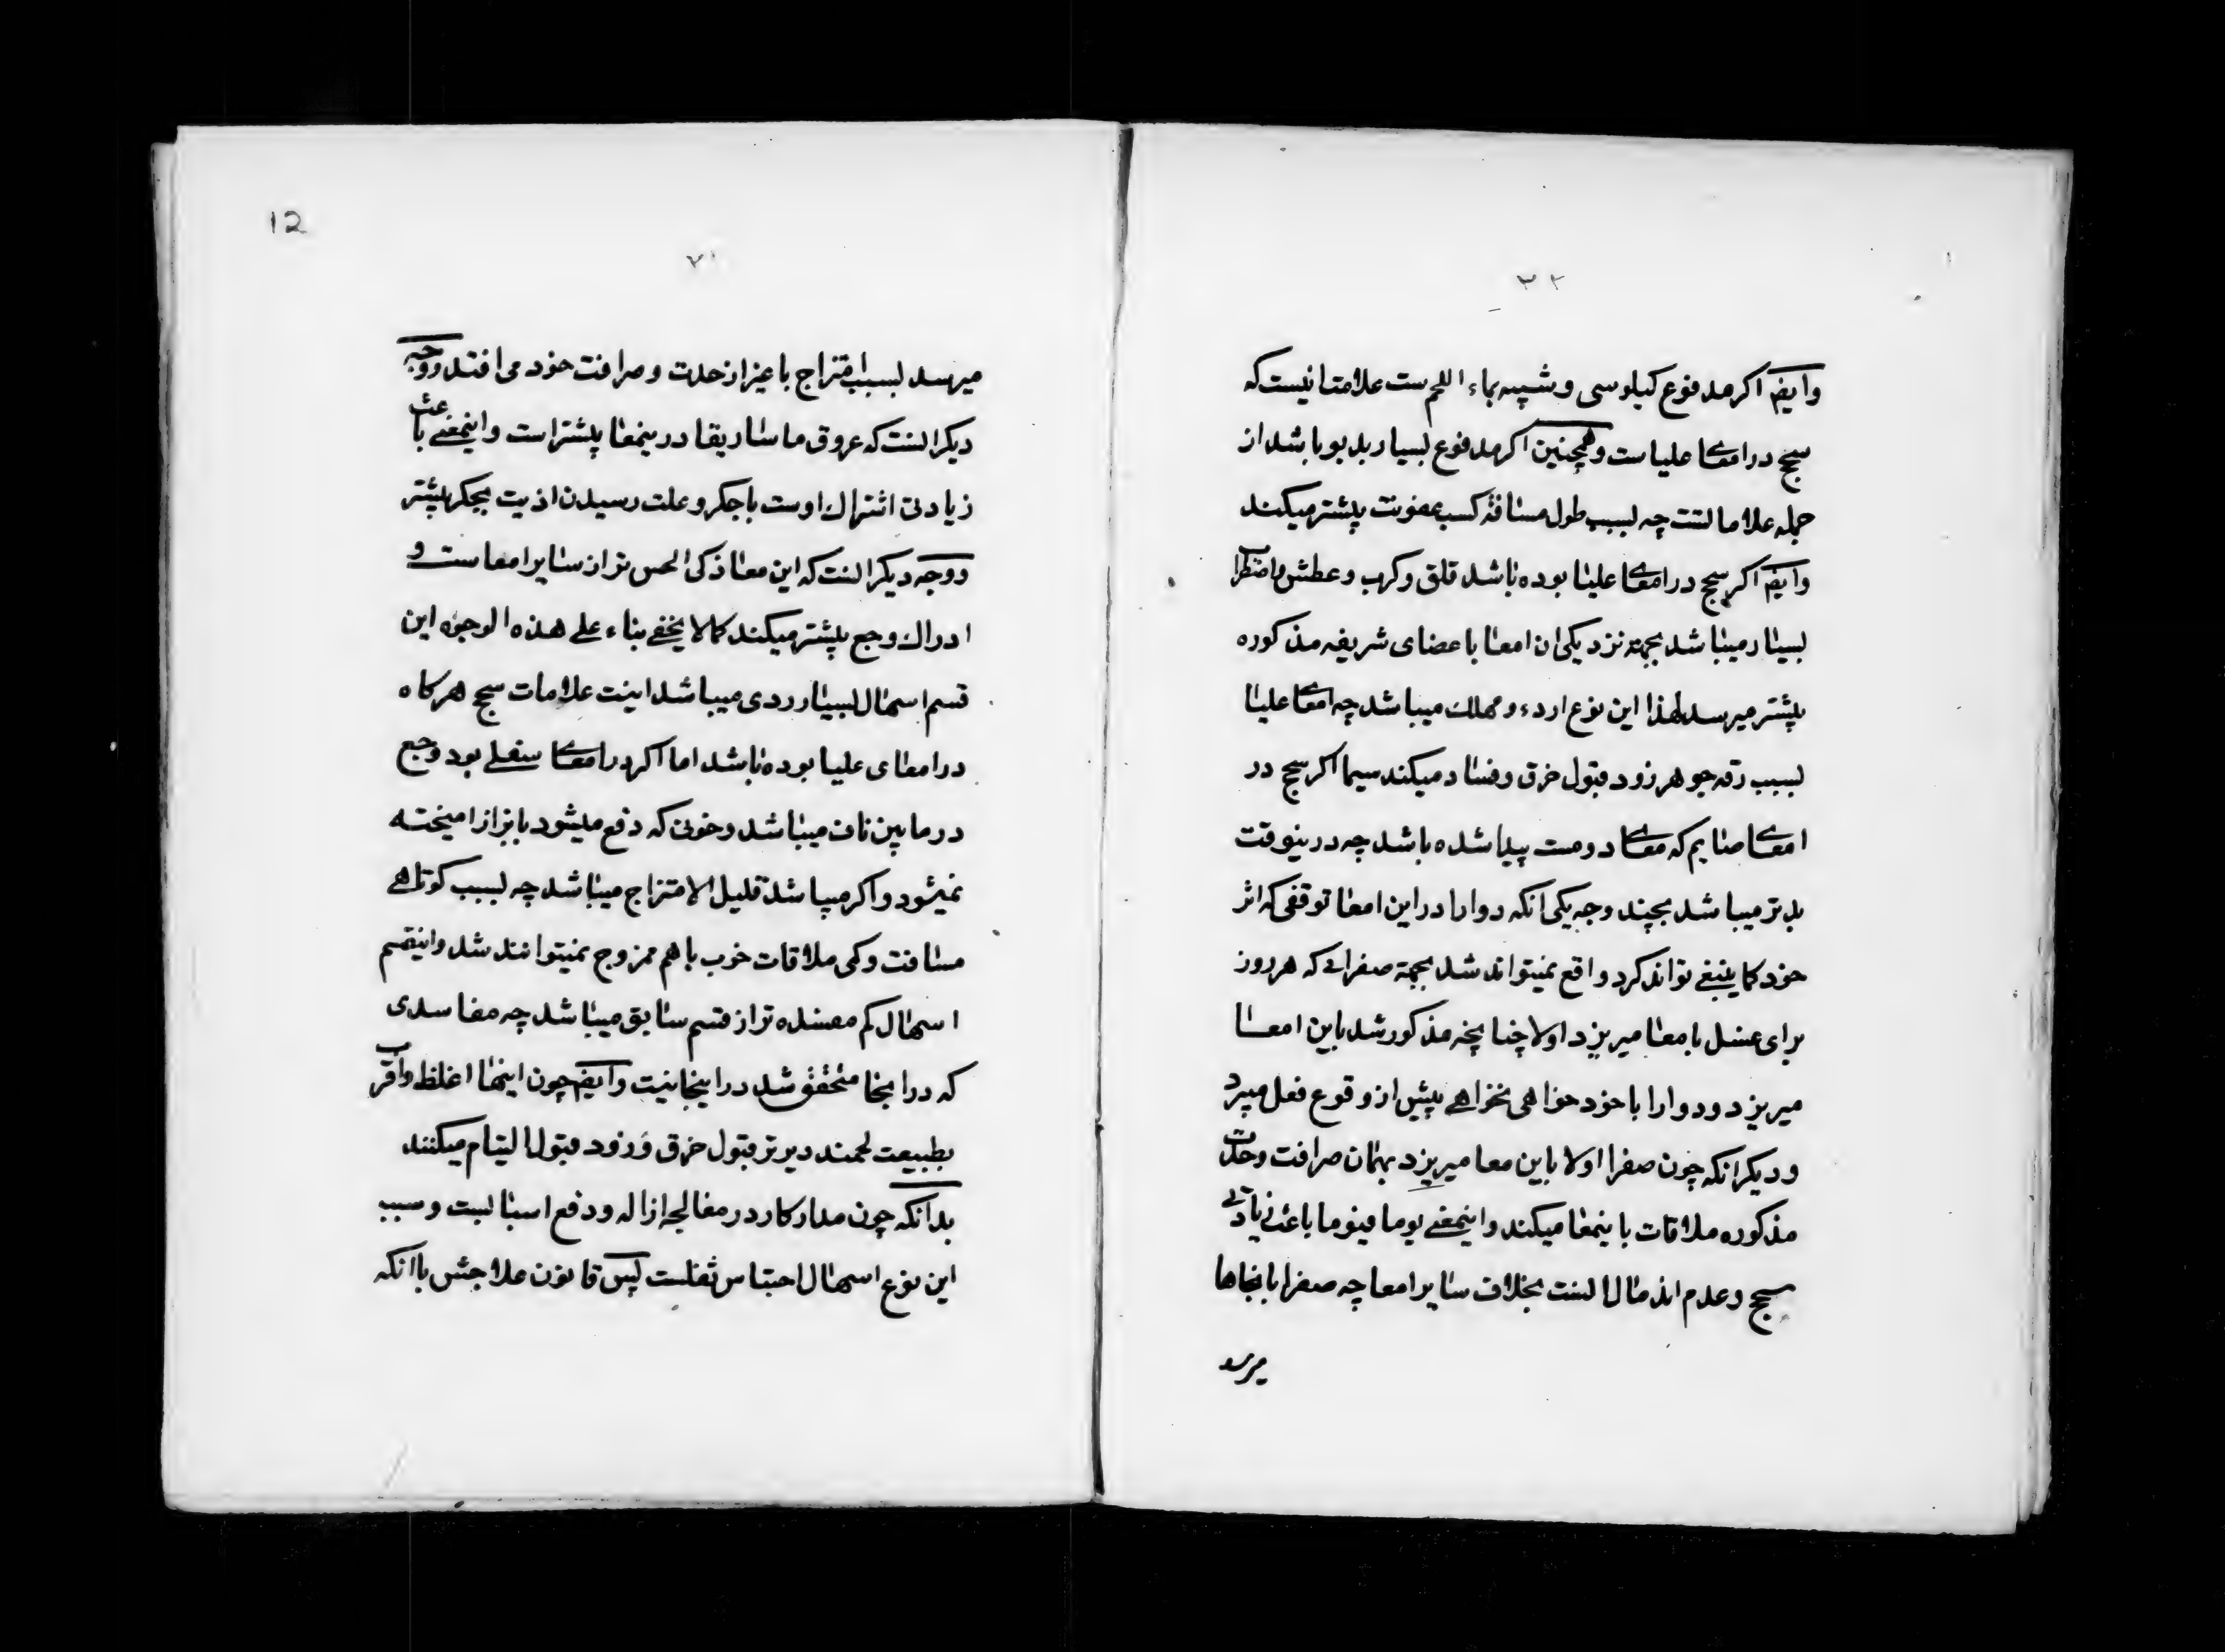 وایضا اکر مدفوع کیلوسی و شبیه بماء اللحم ست علامتانیست که
سحج در امعای علیاست و همچنین اکر مدفوع بسیار بدبو باشد از
جمله علامالتست چه بسبب طول مسافة کسب عفونت بیشتر میکند
وایضا اکر سحج در امعای علیا بوده باشد قلق و کرب و عطش و اضطراب
بسیار میباشد بجهة نزدیکی ان امعا باعضای شریفه مذکوره
بیشتر میرسد لهذا این نوع ارده و مهلك میباشد چه امعای علیا
بسبب رقه جوهر زود قبول خرق و فساد میکند سیما اکر سحج در
امعای صایم که معای دومست پیدا شده باشد چه درینوقت
بدتر میباشد بچند وجه یکی انکه دوا را در این امعا توقفی که اثر
خود کما ینبغی تواند کرد واقع نمیتواند شد بجهة صفرائی که هر روز
برای غسل بامعا میریزد اولا چنانچه مذکور شد باین امعا
میریزد و دوا را با خود خواهی نخواهی پیش از وقوع فعل میبرد
و دیکر انکه چون صفرا اولا باین معا میریزد بهمان صرافت و حدت
مذکوره ملاقات باینمعا میکند و اینمعنی یوما فیوما باعث زیادتی
سحج و عدم اندمال انست بخلاف سایر امعا چه صفرا بانجاها
میرسد
12
میرسد بسبب امتزاج باغیر از حدت و صرافت خود می افتد و وجه
دیکر انست که عروق ماساریقا درینمعا بیشتر است و اینمعنی باعث
زیادتی اشتراك اوست با جکر و علت رسیدن اذیت بجکر بیشتر
و وجه دیکر انست که این معا ذکی الحس تر از سایر امعاست و
ادراك وجع بیشتر میکند کما لا یخفی بناء علی هذه الوجوه این
قسم اسهال بسیار ردی میباشد اینت علامات سحج هر کاه
در امعای علیا بوده باشد اما اکر در امعای سفلی بود وجع
در مابین ناف میباشد و خونی که دفع میشود با براز امیخته
نمیشود و اکر میباشد قلیل الامتزاج میباشد چه بسبب کوتاهی
مسافت و کمی ملاقات خوب باهم ممزوج نمیتوانند شد و اینقسم
اسهال کم مفسده تر از قسم سابق میباشد چه مفاسدی
که در انجا متحقق شد در اینجا نیت وایضا چون اینها اغلظ و اقرب
بطبیعت لحمند دیرتر قبول خرق و زود قبول التیام میکنند
بدانکه چون مدار کار در معالجه ازاله و دفع اسبابست و سبب
این نوع اسهال احتباس ثفلست پس قانون علاجش با انکه